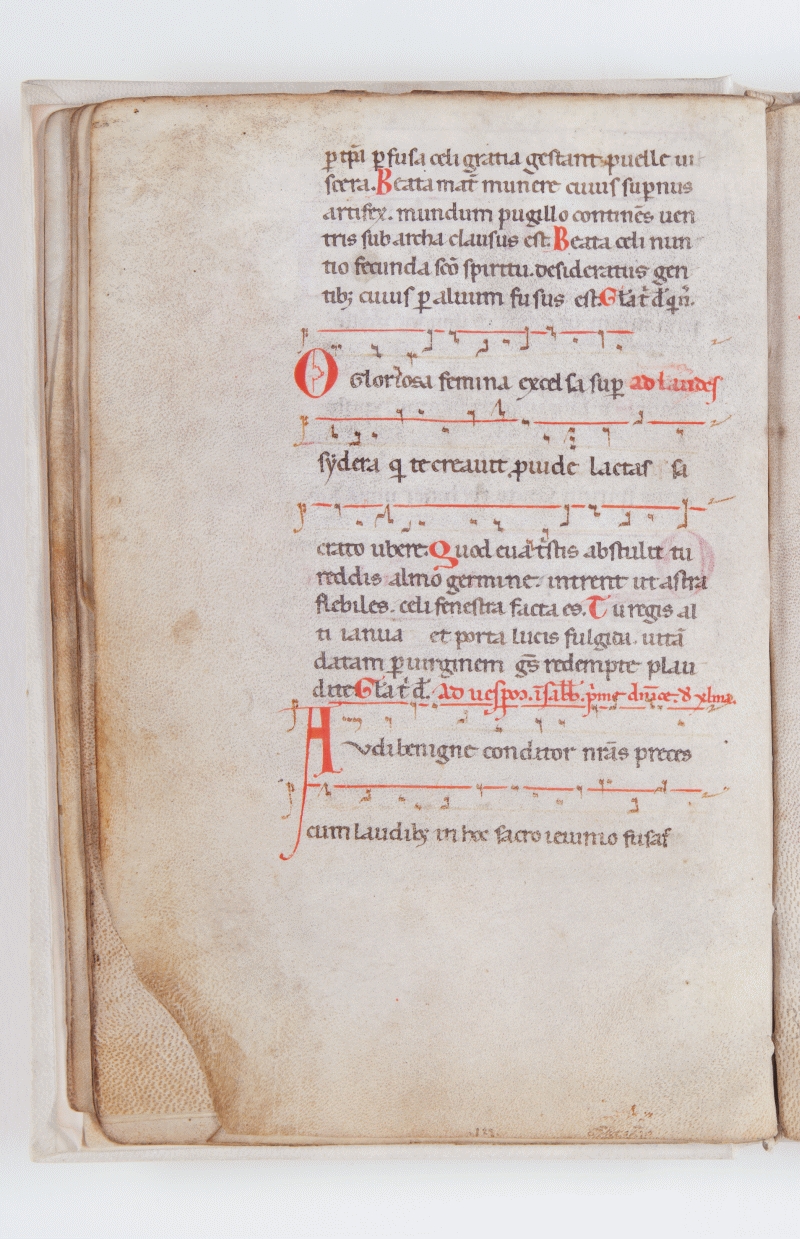 p̱ tp̄a p̱fusa celi gratia gestant puelle ui
scera. Beata mat̄ munere cuius sup̱nus
artifex. mundum pugillo continēs uen
tris sub archa clausus est. Beata celi nun
tio fecunda sc̄o spiritu. desideratus gen
tibꝫ cuius p̱ aluum fusus est. Gl̄a t̄ d̄
O Gloriosa femina excelsa sup̱ ad laudes
sydera q̄ te creauit ꝓuide lactasˊ sa
crato ubere. Quod eua t̄stis abstulit tu
reddis almo germine. intrent ut astra
flebiles. celi fenestra facta es. Tu regis al
ti ianua et porta lucis fulgida. uitā
datam p̱ uirginem gn̄s redempte plau
dite. Gl̄a t̄ d̄. Ad uesp̱os. ī sabb̄. p̄me dn̄ice. ī xlma.
Audi benigne conditor nr̄as preces
cum laudibꝫ in hoc sacro ieiunio fusas